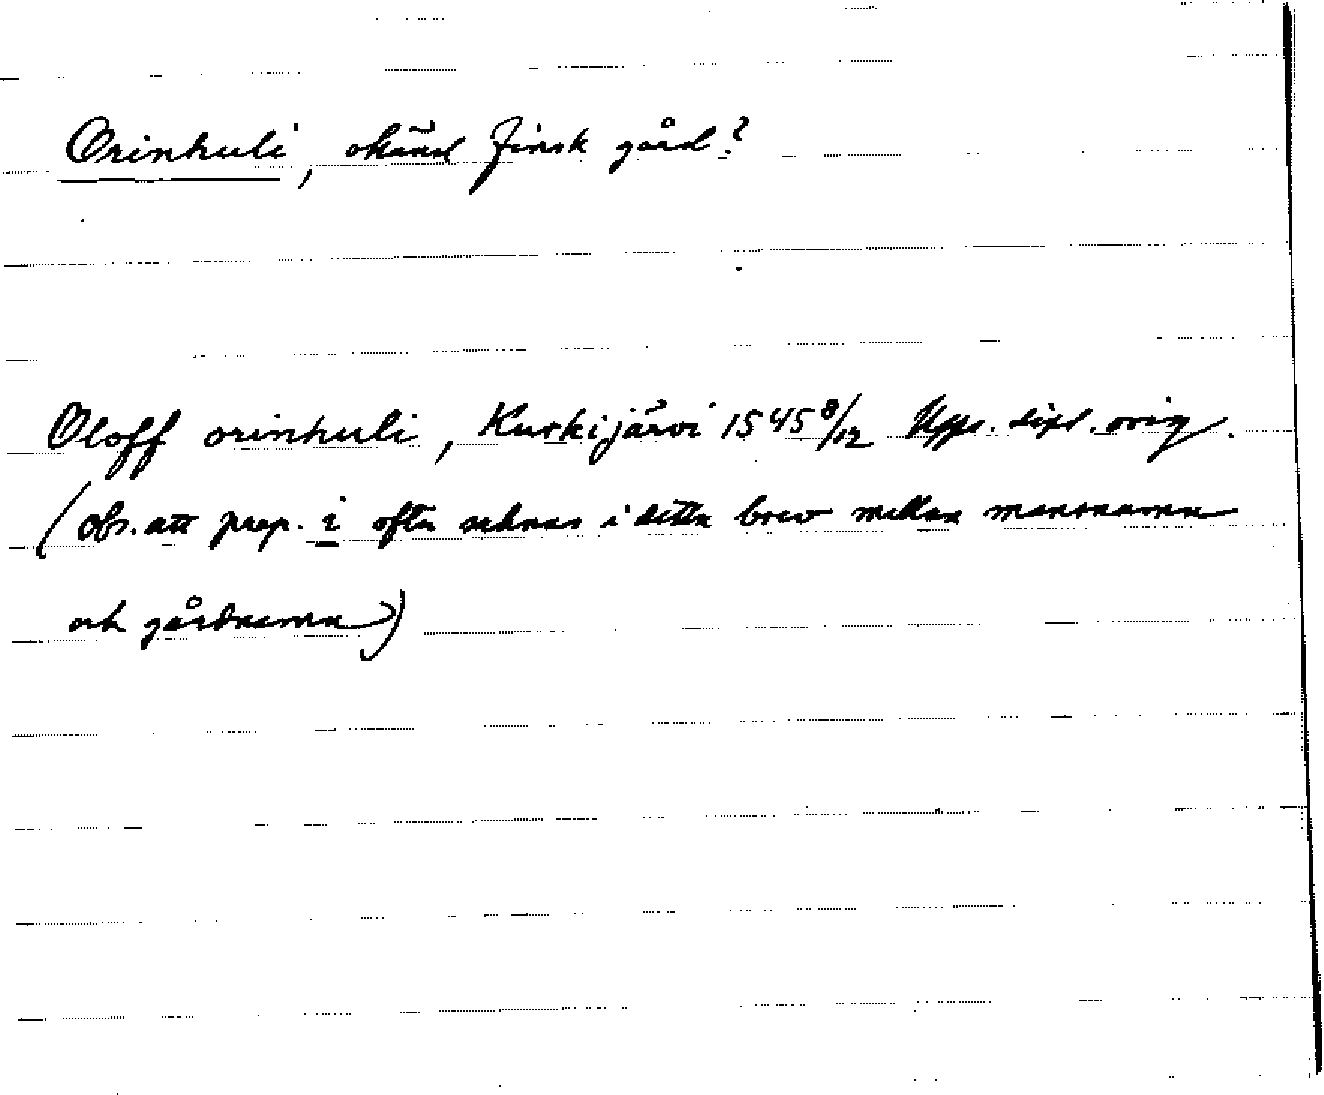 Orinhuli, okänd finsk gård?
Oloff orinhuli, Kurkijärvi 1545 8/12 Upps. dipl. orig.
(obs. att prep. i ofta saknas i detta brev mellan mansnamn
och gårdnamn)